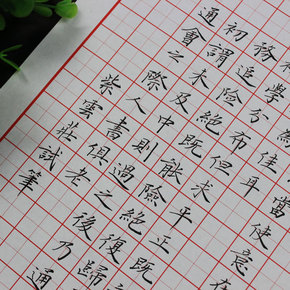 當使意在
為佳耳
學分布但求平正既
務追險絕既能險絕復歸
初謂未及中則過之後乃通
通會之際人書俱老
紫雲莊試筆